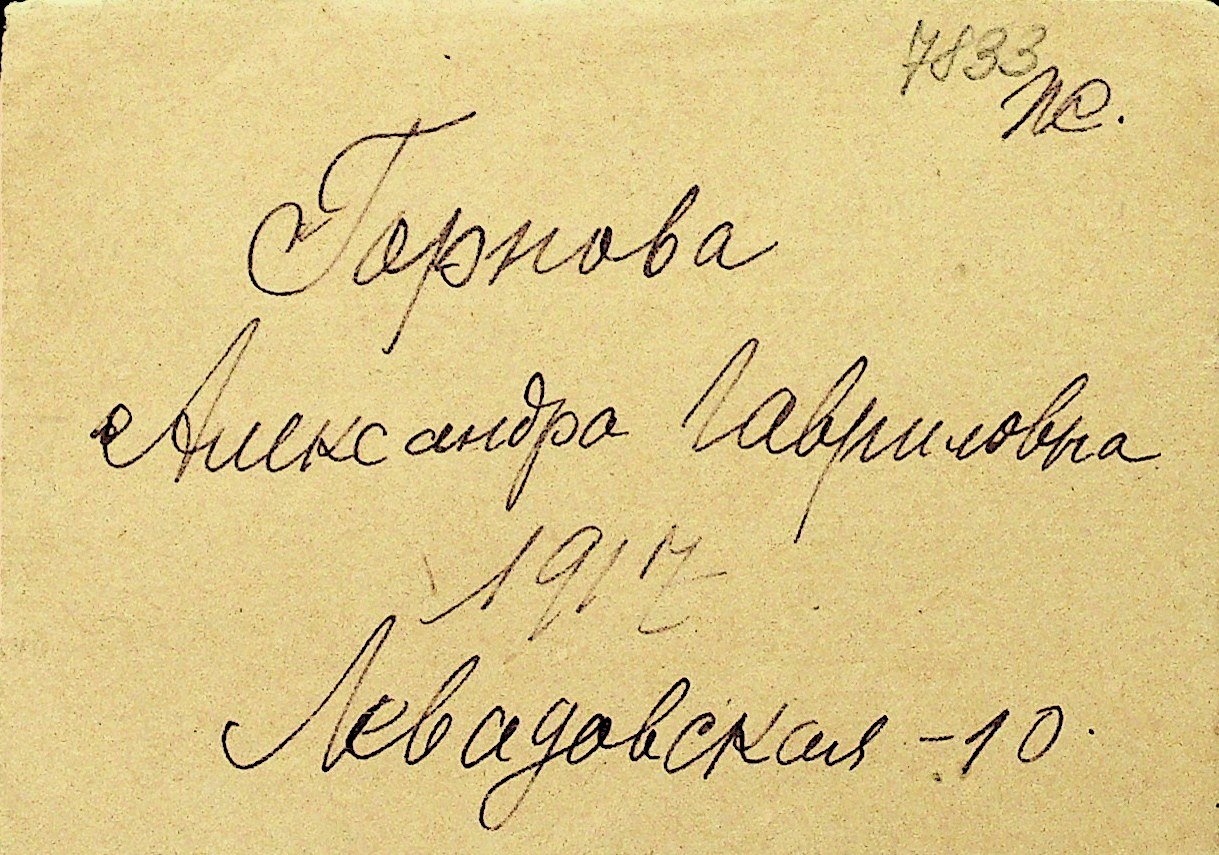 7833
пс.
Горнова
Александра Гавриловна
1917
Левадовская - 10.